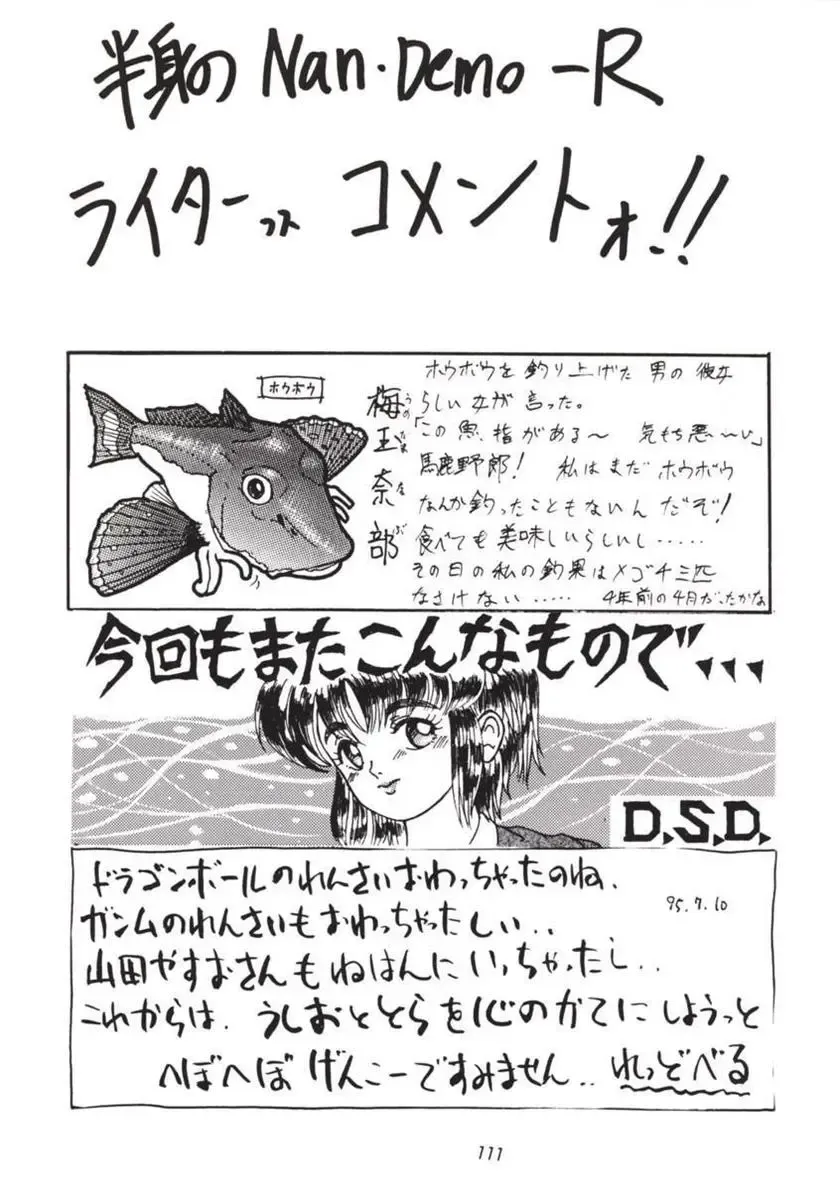 半身の Nan・Demo-R
ライターズ コメントォ!!
ホウボウ
梅玉奈部
うめ たま な べ
ホウボウを釣り上げた 男の 彼女
らしい女が言った。
「この魚、指がある〜 気もち悪〜い」
馬鹿野郎! 私はまだ ホウボウ
なんか釣ったこともないんだぞ!
食べても美味しいらしいし‥‥‥
その日の私の釣果はメゴチ三匹
なさけない‥‥‥ 4年前の4月だったかな
今回もまたこんなもので、、、
D.S.D.
ドラゴンボールのれんさいおわっちゃったのね、
95.7.10
ガンムのれんさいもおわっちゃったしい‥
山田やすおさんもねはんにいっちゃったし‥
これからは、うしおととらを心のかてにしようっと
へぼへぼげんこーですみません‥ れっどべる
111